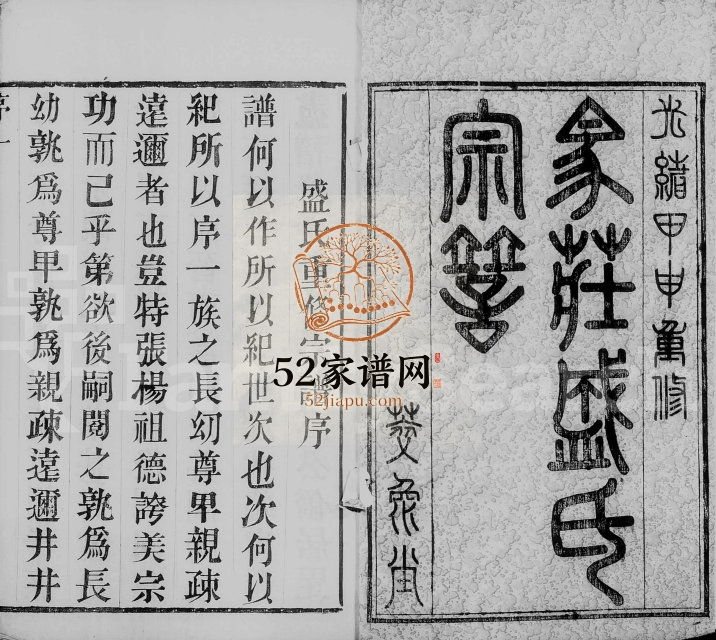 光緒甲申重修
莊盛氏
宗譜
堂
盛氏重修宗譜序
譜何以作所以紀世次也次何以
紀所以序一族之長幼尊卑親疎
遠邇者也豈特張楊祖德誇美宗
功而已乎第欲後嗣閱之孰爲長
幼孰爲尊甲孰爲親疎遠邇井井
序一
52家谱网
52jiapu.com